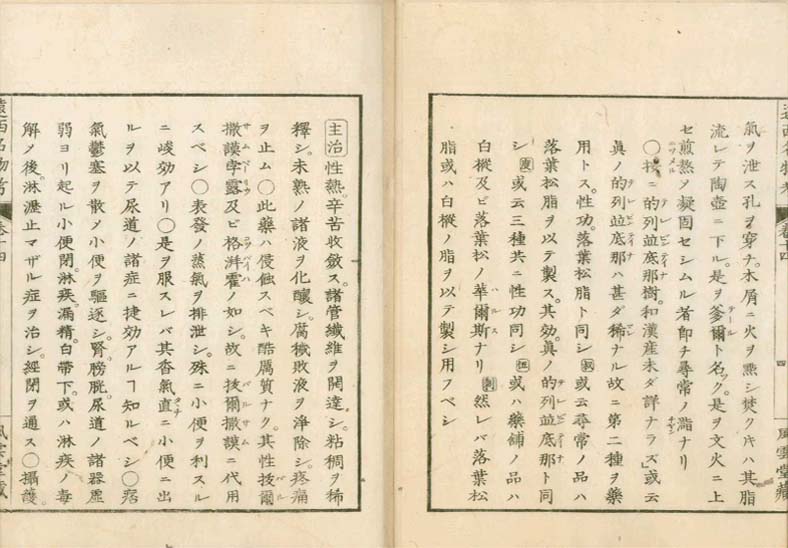 氣ヲ泄ス孔ヲ穿チ。木屑ニ火ヲ㸃シ焚クキハ其脂
流レテ陶壺ニ下ル。是ヲ爹爾ト名ック。是ヲ文火ニ上
セ煎熬〆凝固セシムル者卽チ尋常ノ瀝ナリ
〇按ニ的列並底那樹。和漢産未ダ詳ナラズ」或云
眞ノ的列並底那ハ甚ダ稀ナル故ニ第二種ヲ藥
用トス。性功。落葉松脂ト同シ 或云尋常ノ品ハ
落葉松脂ヲ以テ製ス。其効。眞ノ的列並底那ト同
シ 或云三種共ニ性功同シ 或ハ藥鋪ノ品ハ
白樅及ビ落葉松ノ華爾斯ナリ 然レバ落葉松
脂或ハ白樅ノ脂ヲ以テ製シ用フベシ
遠西名物考 卷十四 四 風雲堂藏
主治 性熱。辛苦收斂ス。諸管纖維ヲ開達シ。粘稠ヲ稀
釋シ。未熟ノ諸液ヲ化釀シ。腐穢敗液ヲ淨除シ。疼痛
ヲ止ム〇此藥ハ侵蝕スベキ酷厲質ナク。其性拔爾
撒謨孛露及ビ格湃霍ノ如シ。故ニ拔爾撒謨ニ代用
スベシ〇表發ノ蒸氣ヲ排泄シ。殊ニ小便ヲ利スル
ニ峻効アリ〇是ヲ服スレバ其香氣直ニ小便ニ出
ルヲ以テ尿道ノ諸症ニ捷効アルヿ知ルベシ〇痞
氣鬱塞ヲ散〆小便ヲ驅逐シ。腎。膀胱。尿道ノ諸器虛
弱ヨリ起ル小便閉。淋疾。漏精。白帶下。或ハ淋疾ノ毒
解〆後。淋瀝止マザル症ヲ治シ。經閉ヲ通ス〇攝護。
遠西名物考 卷十四 風雲堂藏